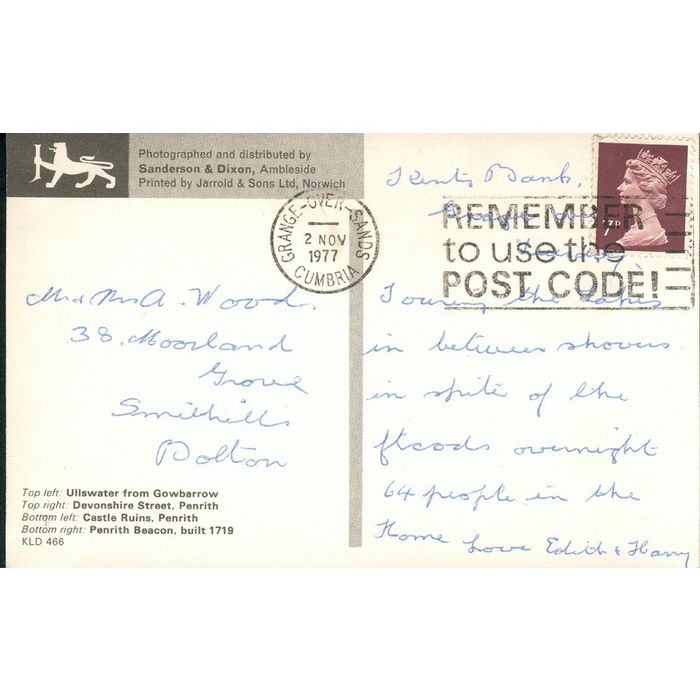 Photographed and distributed by
Sanderson & Dixon, Ambleside
Printed by Jarrold & Sons Ltd, Norwich
GRANGE-OVER-SANDS
2 NOV
1977
CUMBRIA
REMEMBER
to use the
POST CODE!
7P
Kents Bank,
Grange over
Sands,
Touring the lakes
in between showers
in spite of the
floods overnight
64 people in the
Home Love Edith & Harry
Mr & Mrs A. Wood.
38. Moorland
Grove
Smithills
Bolton
Top left: Ullswater from Gowbarrow
Top right: Devonshire Street, Penrith
Bottom left: Castle Ruins, Penrith
Bottom right: Penrith Beacon, built 1719
KLD 466